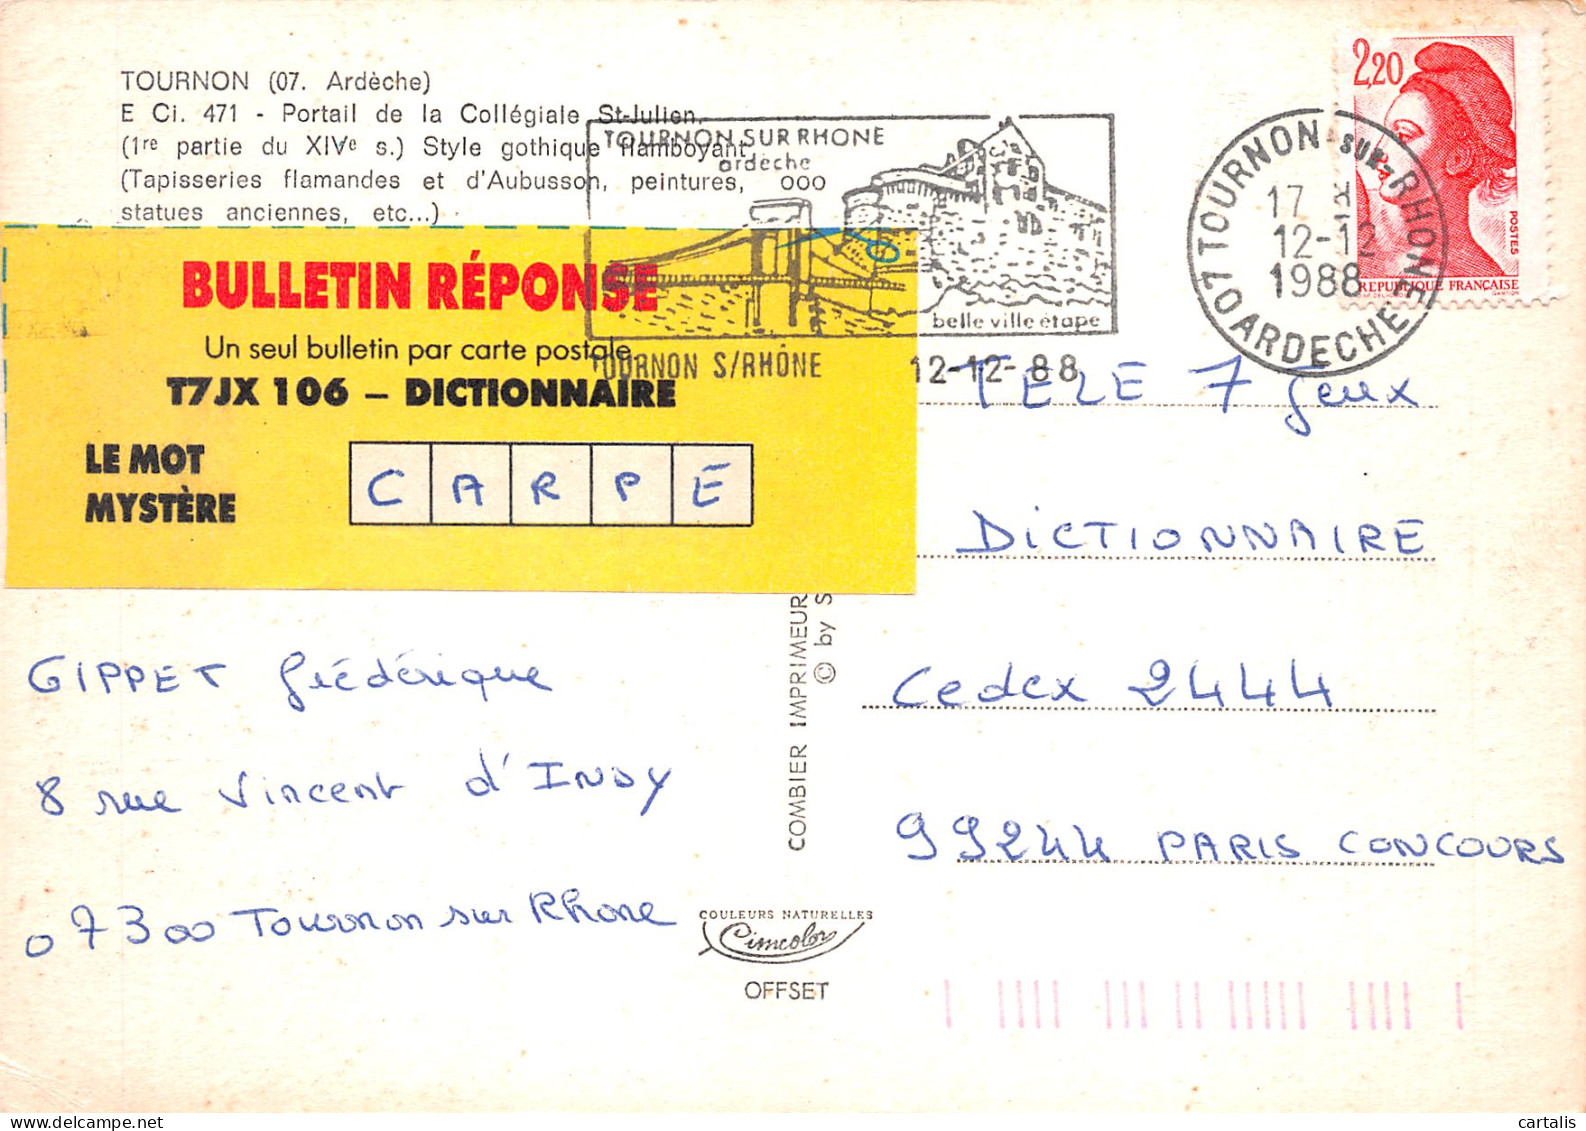 TOURNON (07. Ardèche)
E Ci. 471 - Portail de la Collégiale St-Julien,
(1re partie du XIVe s.) Style gothique flamboyant,
(Tapisseries flamandes et d'Aubusson, peintures, ooo
statues anciennes, etc...)
TOURNON SUR RHONE
ardèche
belle ville étape
TOURNON S/RHÔNE 12-12-88
07 TOURNON-SUR-RHONE
17 H
12-12
1988
ARDECHE
2,20
POSTES
REPUBLIQUE FRANÇAISE
BULLETIN RÉPONSE
Un seul bulletin par carte postale
T7JX 106 – DICTIONNAIRE
LE MOT
MYSTÈRE
C A R P E
TELE 7 Jeux
DICTIONNAIRE
Cedex 2444
99244 PARIS CONCOURS
GIPPET Frédérique
8 rue Vincent d'INDY
07300 Tournon sur Rhone
COMBIER IMPRIMEUR
© by S
COULEURS NATURELLES
Cimcolor
OFFSET
cartalis